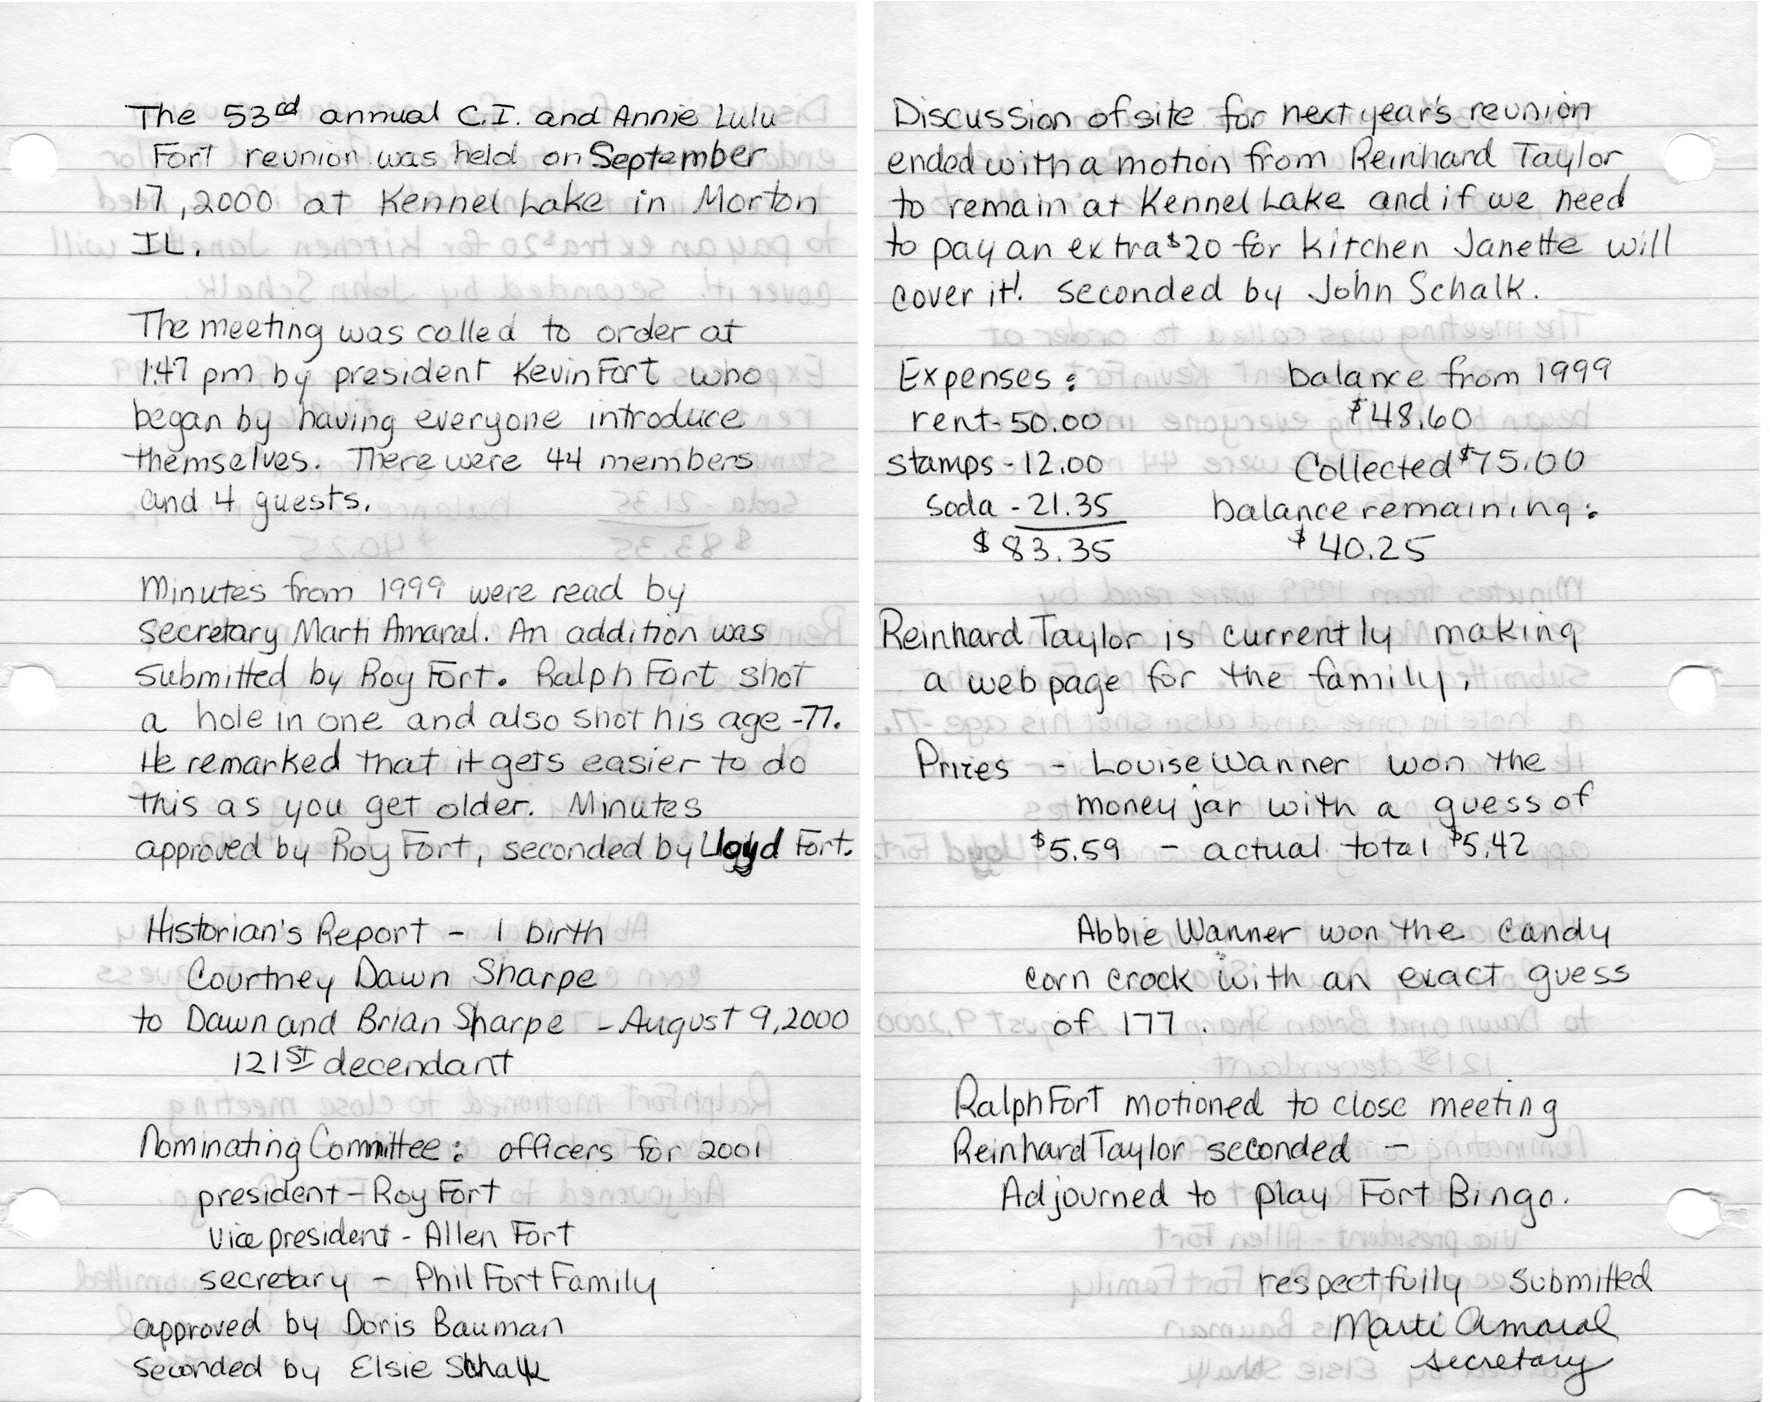 The 53rd annual C.I. and Annie Lulu
Fort reunion was held on September
17, 2000 at Kennel Lake in Morton
IL.
The meeting was called to order at
1:47 pm by president Kevin Fort who
began by having everyone introduce
themselves. There were 44 members
and 4 guests.
Minutes from 1999 were read by
secretary Marti Amaral. An addition was
submitted by Roy Fort. Ralph Fort shot
a hole in one and also shot his age -77.
He remarked that it gets easier to do
this as you get older. Minutes
approved by Roy Fort, seconded by Lloyd Fort.
Historian's Report - 1 birth
Courtney Dawn Sharpe
to Dawn and Brian Sharpe - August 9, 2000
121st decendant
Nominating Committee: officers for 2001
president - Roy Fort
vice president - Allen Fort
secretary - Phil Fort Family
approved by Doris Bauman
seconded by Elsie Schalk
Discussion of site for next year's reunion
ended with a motion from Reinhard Taylor
to remain at Kennel Lake and if we need
to pay an extra $20 for kitchen Janette will
cover it! seconded by John Schalk.
Expenses: balance from 1999
rent - 50.00 $48.60
stamps - 12.00 Collected $75.00
soda - 21.35 balance remaining:
$83.35 $40.25
Reinhard Taylor is currently making
a web page for the family.
Prizes - Louise Wanner won the
money jar with a guess of
$5.59 - actual total $5.42
Abbie Wanner won the candy
corn crock with an exact guess
of 177.
Ralph Fort motioned to close meeting
Reinhard Taylor seconded -
Adjourned to play Fort Bingo.
respectfully submitted
Marti Amaral
secretary